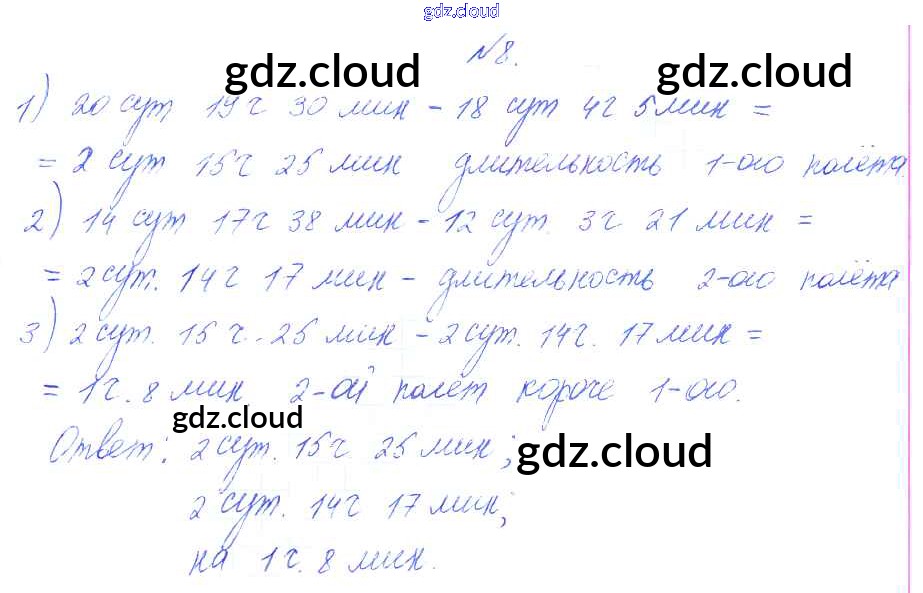 gdz.cloud
№8.
gdz.cloud gdz.cloud
1) 20 сут 19ч 30 мин - 18 сут 4ч 5мин =
= 2 сут 15ч 25 мин длительность 1-ого полёта.
2) 14 сут 17ч 38 мин - 12 сут. 3ч 21 мин =
= 2сут. 14ч 17 мин - длительность 2-ого полёта
3) 2 сут. 15 ч. 25 мин - 2 сут. 14ч. 17 мин =
= 1ч. 8 мин 2-ой полёт короче 1-ого.
gdz.cloud
Ответ: 2 сут. 15ч 25 мин;
gdz.cloud
2 сут. 14ч 17 мин;
на 1ч. 8 мин.